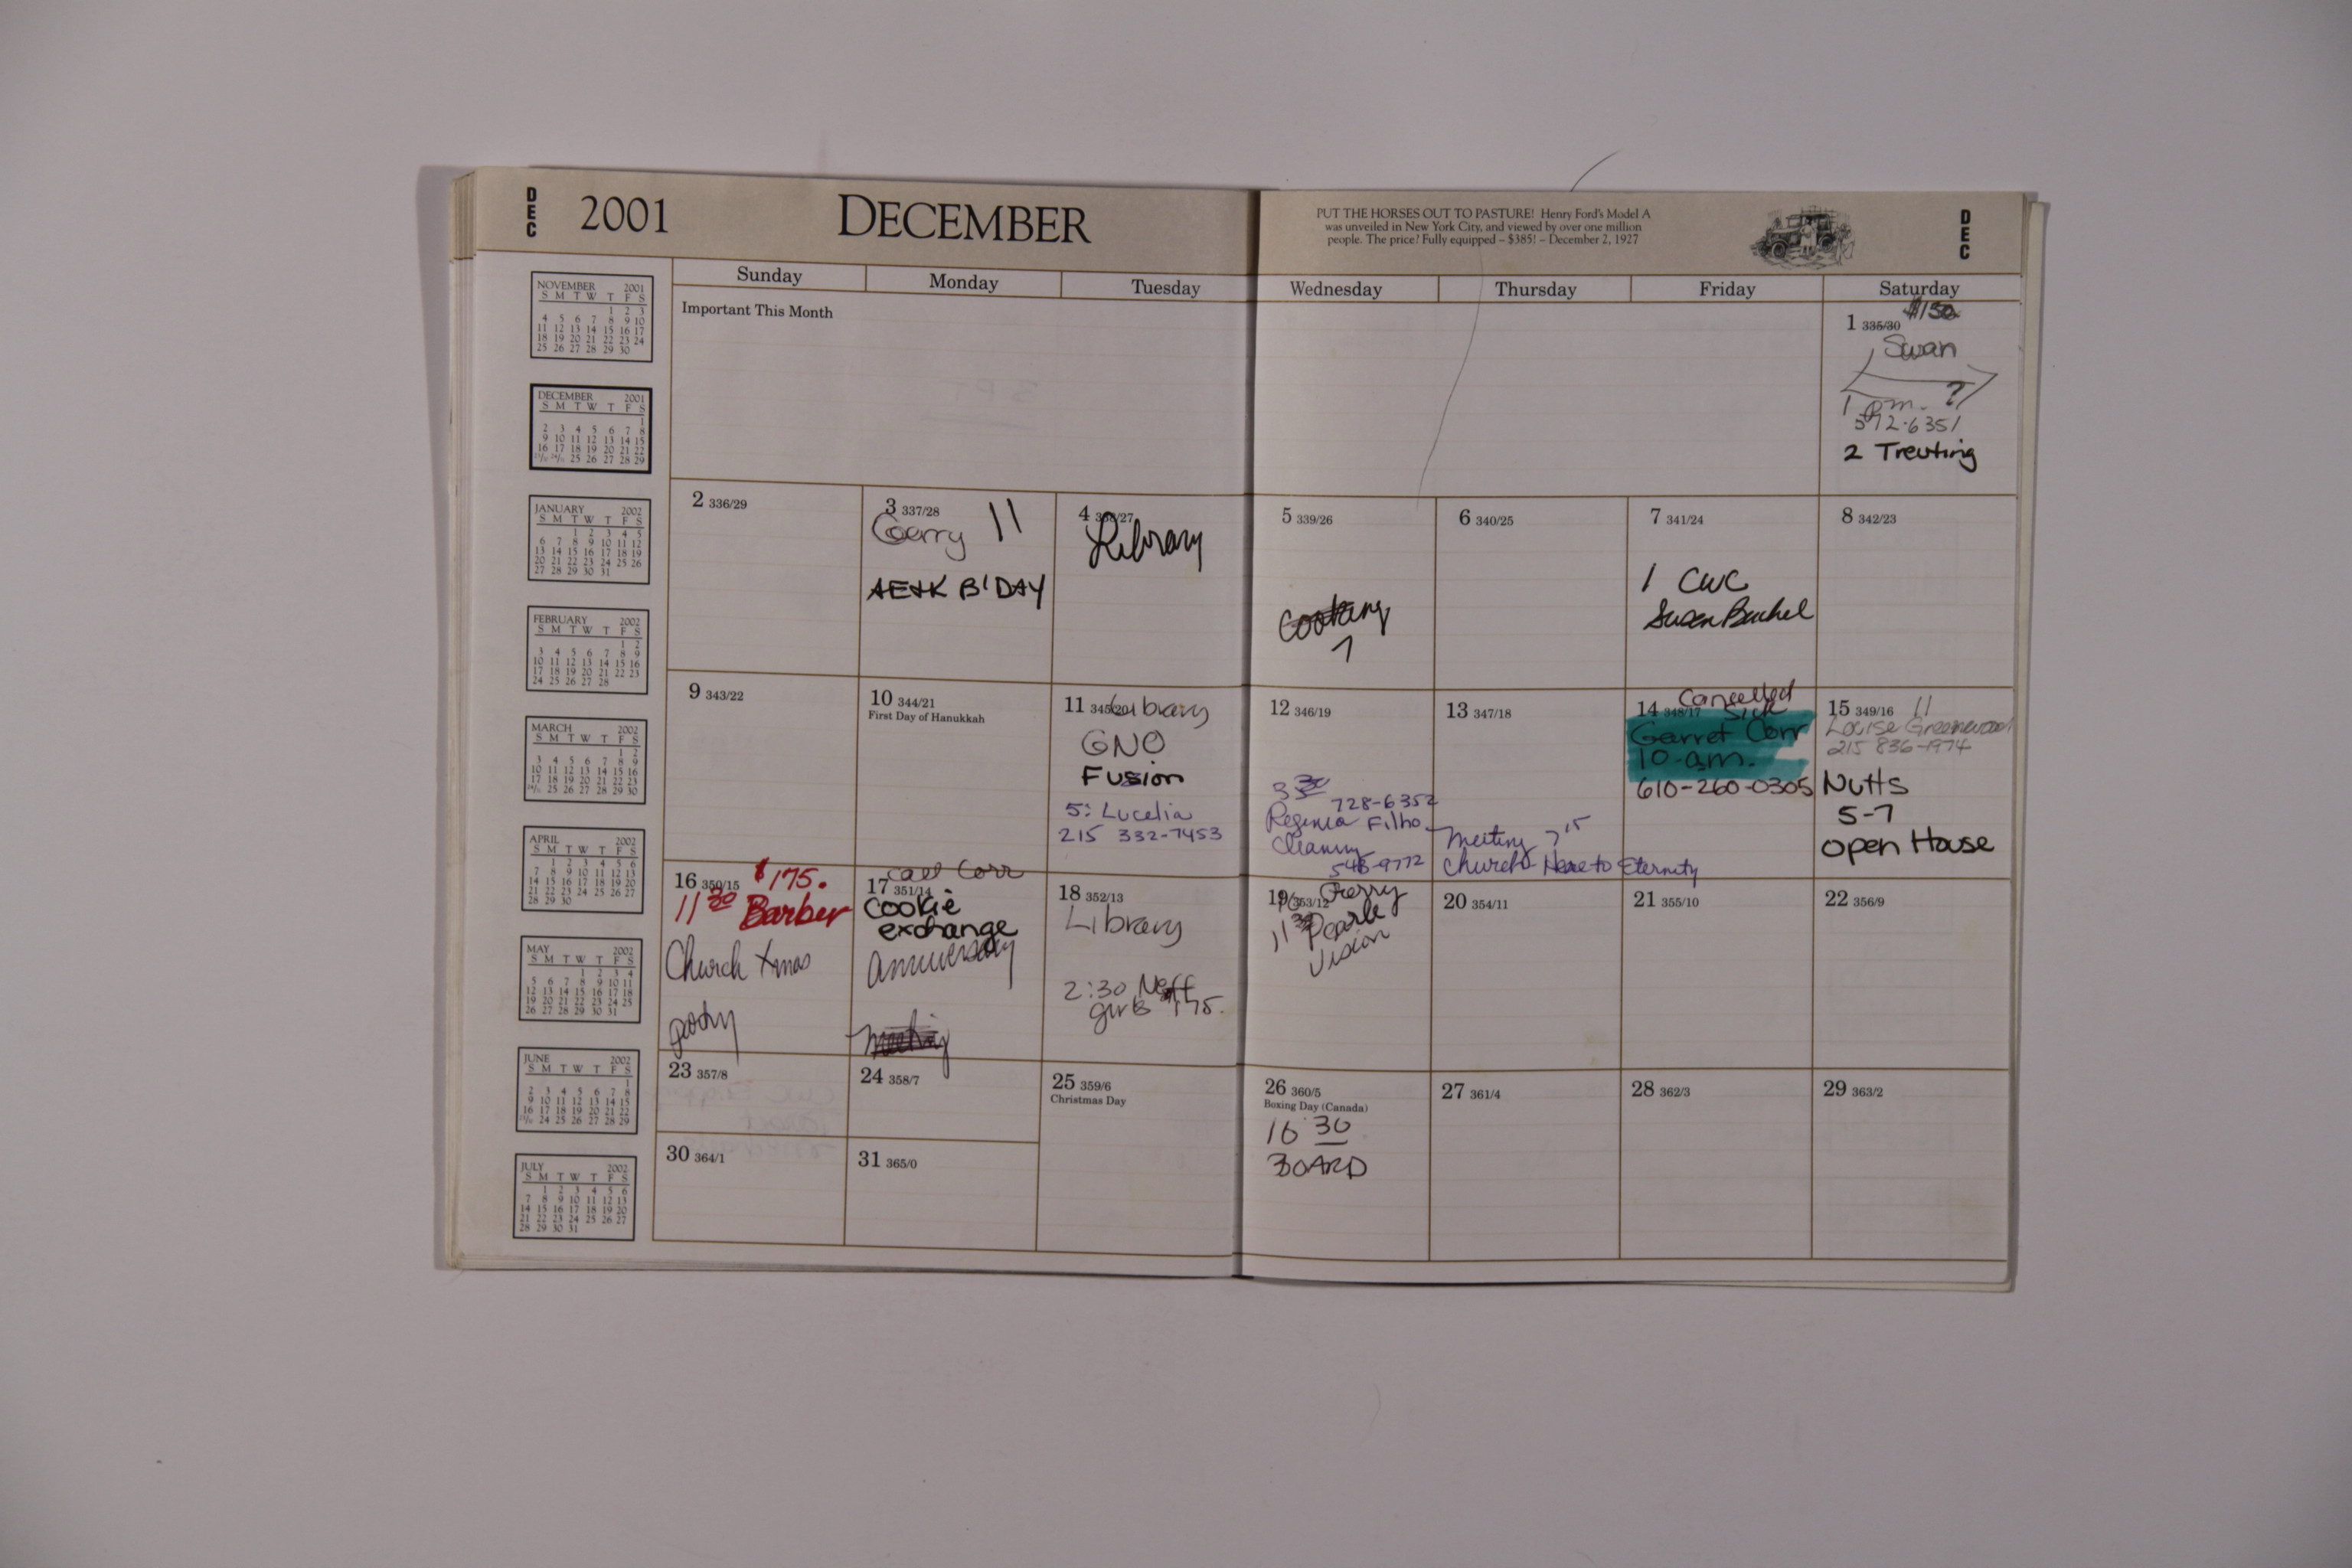 DEC
2001
DECEMBER
PUT THE HORSES OUT TO PASTURE! Henry Ford's Model A
was unveiled in New York City, and viewed by over one million
people. The price? Fully equipped – $385! – December 2, 1927
DEC
Sunday Monday Tuesday Wednesday Thursday Friday Saturday
Important This Month
1 335/30 $150
Swan
1 p.m. ?
572-6351
2 Treuting
2 336/29
3 337/28
Gerry 11
AE+K B'DAY
4 338/27
Library
5 339/26
Cooking
7
6 340/25
7 341/24
1 CWC
Susan Bachel
8 342/23
9 343/22
10 344/21
First Day of Hanukkah
11 345/20 Library
GNO
Fusion
5: Lucelia
215 332-7453
12 346/19
3 30
728-6352
Regina Filho
Cleaning
548-9772
13 347/18
Meeting 7 15
Church Here to Eternity
Cancelled
14 348/17 Sick
Garret Corr
10 a.m.
610-260-0305
15 349/16 11
Louise Greenwood
215 836-1974
Nutts
5-7
open House
16 350/15 $175.
11 30 Barber
Church Xmas
party
call Corr
17 351/14
cookie
exchange
anniversary
meeting
18 352/13
Library
2:30 Neff
girls 175.
19 353/12
10 Gerry
11 30 Pearle
Vision
20 354/11
21 355/10
22 356/9
23 357/8
24 358/7
25 359/6
Christmas Day
26 360/5
Boxing Day (Canada)
10 30
BOARD
27 361/4
28 362/3
29 363/2
30 364/1
31 365/0
NOVEMBER 2001
S M T W T F S
1 2 3
4 5 6 7 8 9 10
11 12 13 14 15 16 17
18 19 20 21 22 23 24
25 26 27 28 29 30
DECEMBER 2001
S M T W T F S
1
2 3 4 5 6 7 8
9 10 11 12 13 14 15
16 17 18 19 20 21 22
25 26 27 28 29
JANUARY 2002
S M T W T F S
1 2 3 4 5
6 7 8 9 10 11 12
13 14 15 16 17 18 19
20 21 22 23 24 25 26
27 28 29 30 31
FEBRUARY 2002
S M T W T F S
1 2
3 4 5 6 7 8 9
10 11 12 13 14 15 16
17 18 19 20 21 22 23
24 25 26 27 28
MARCH 2002
S M T W T F S
1 2
3 4 5 6 7 8 9
10 11 12 13 14 15 16
17 18 19 20 21 22 23
25 26 27 28 29 30
APRIL 2002
S M T W T F S
1 2 3 4 5 6
7 8 9 10 11 12 13
14 15 16 17 18 19 20
21 22 23 24 25 26 27
28 29 30
MAY 2002
S M T W T F S
1 2 3 4
5 6 7 8 9 10 11
12 13 14 15 16 17 18
19 20 21 22 23 24 25
26 27 28 29 30 31
JUNE 2002
S M T W T F S
1
2 3 4 5 6 7 8
9 10 11 12 13 14 15
16 17 18 19 20 21 22
24 25 26 27 28 29
JULY 2002
S M T W T F S
1 2 3 4 5 6
7 8 9 10 11 12 13
14 15 16 17 18 19 20
21 22 23 24 25 26 27
28 29 30 31